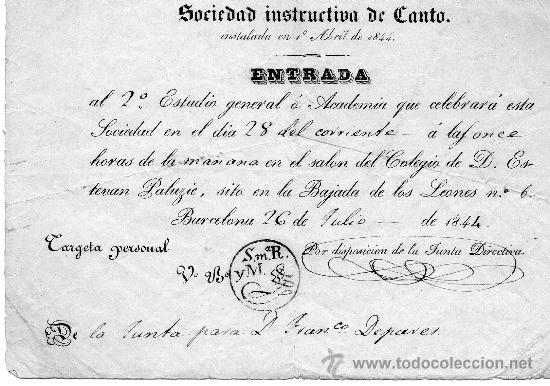 Sociedad instructiva de Canto.
instalada en 1º Abril de 1844.
ENTRADA
al 2º Estudio general ó Academia que celebrará esta
Sociedad en el dia 28 del corriente á las once
horas de la mañana en el salon del Colegio de D. Es-
tevan Paluzie, sito en la Bajada de los Leones nº 6.
Barcelona 26 de Julio de 1844.
Targeta personal
Por disposicion de la Junta Directiva.
S.mª R.
y M.
De la Junta para D. Franco. Depares
www.todocoleccion.net